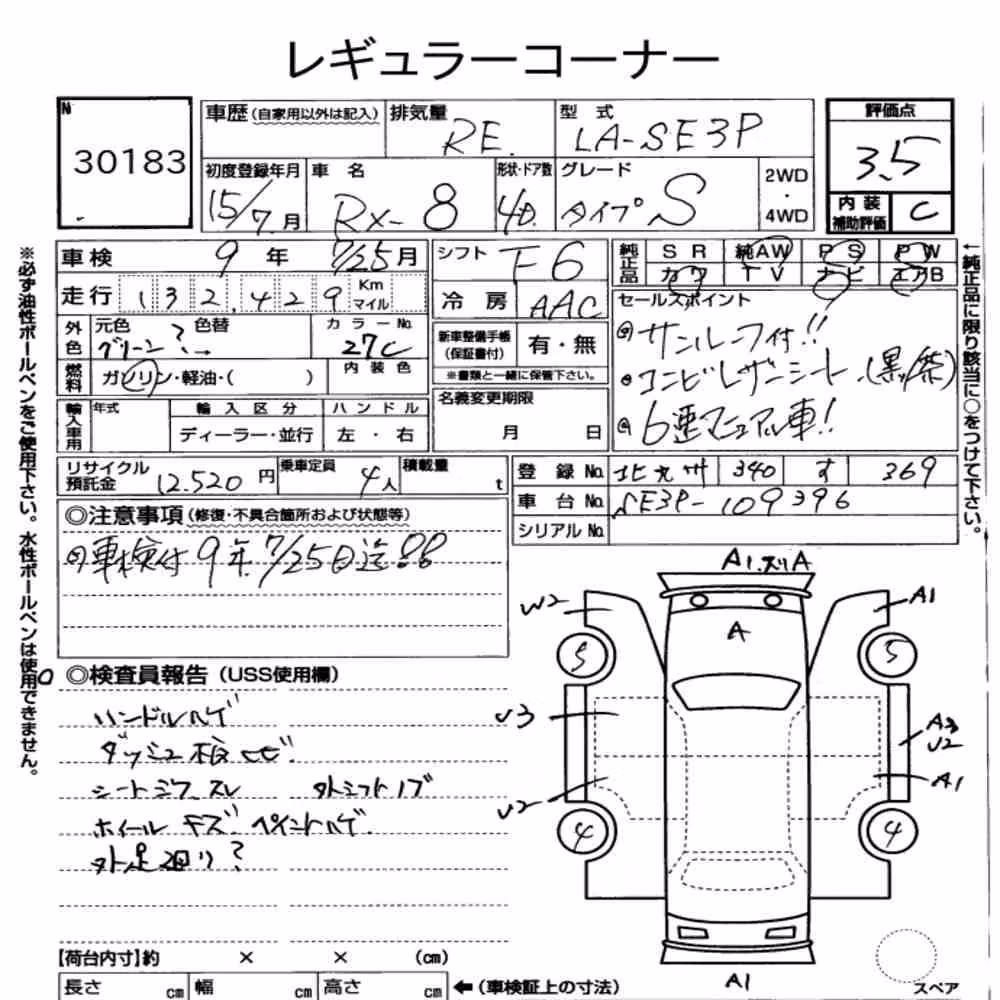 レギュラーコーナー
N
30183
車歴(自家用以外は記入) 排気量 RE. 型式 LA-SE3P
初度登録年月 15/7月 車名 RX-8 形状・ドア数 4D. グレード タイプS 2WD・4WD
評価点
3.5
内装補助評価 C
車検 9年 7/25月 シフト F6
走行 132,429 Km マイル 冷房 AAC
純正品 SR 純AW PS PW
カワ TV ナビ エアB
外色 元色 グリーン ? 色替 カラーNo. 27C
新車整備手帳(保証書付) 有・無
※書類と一緒に保管下さい。
燃料 ガソリン・軽油・( ) 内装色
名義変更期限 月 日
輸入車用 年式 輸入区分 ハンドル
ディーラー・並行 左・右
セールスポイント
サンルーフ付!!
コンビレザーシート(黒/茶)
6速マニュアル車!
リサイクル預託金 12.520円 乗車定員 4人 積載量 t
登録No. 北九州 340 す 369
車台No. SE3P-109396
シリアルNo.
◎注意事項(修復・不具合箇所および状態等)
車検付 9年7/25日迄
◎検査員報告(USS使用欄)
ハンドルハゲ
ダッシュ板ヒビ
シートシワ スレ 外シフトノブ
ホイールキズ ペイントハゲ
外足廻り?
【荷台内寸】約 × × (cm)
長さ cm 幅 cm 高さ cm ←(車検証上の寸法)
A1.スリA
U2
A1
A
5
5
U3
A3
U2
A1
U2
4
4
A1
スペア
※必ず油性ボールペンをご使用下さい。水性ボールペンは使用できません。
←純正品に限り該当に○をつけて下さい。